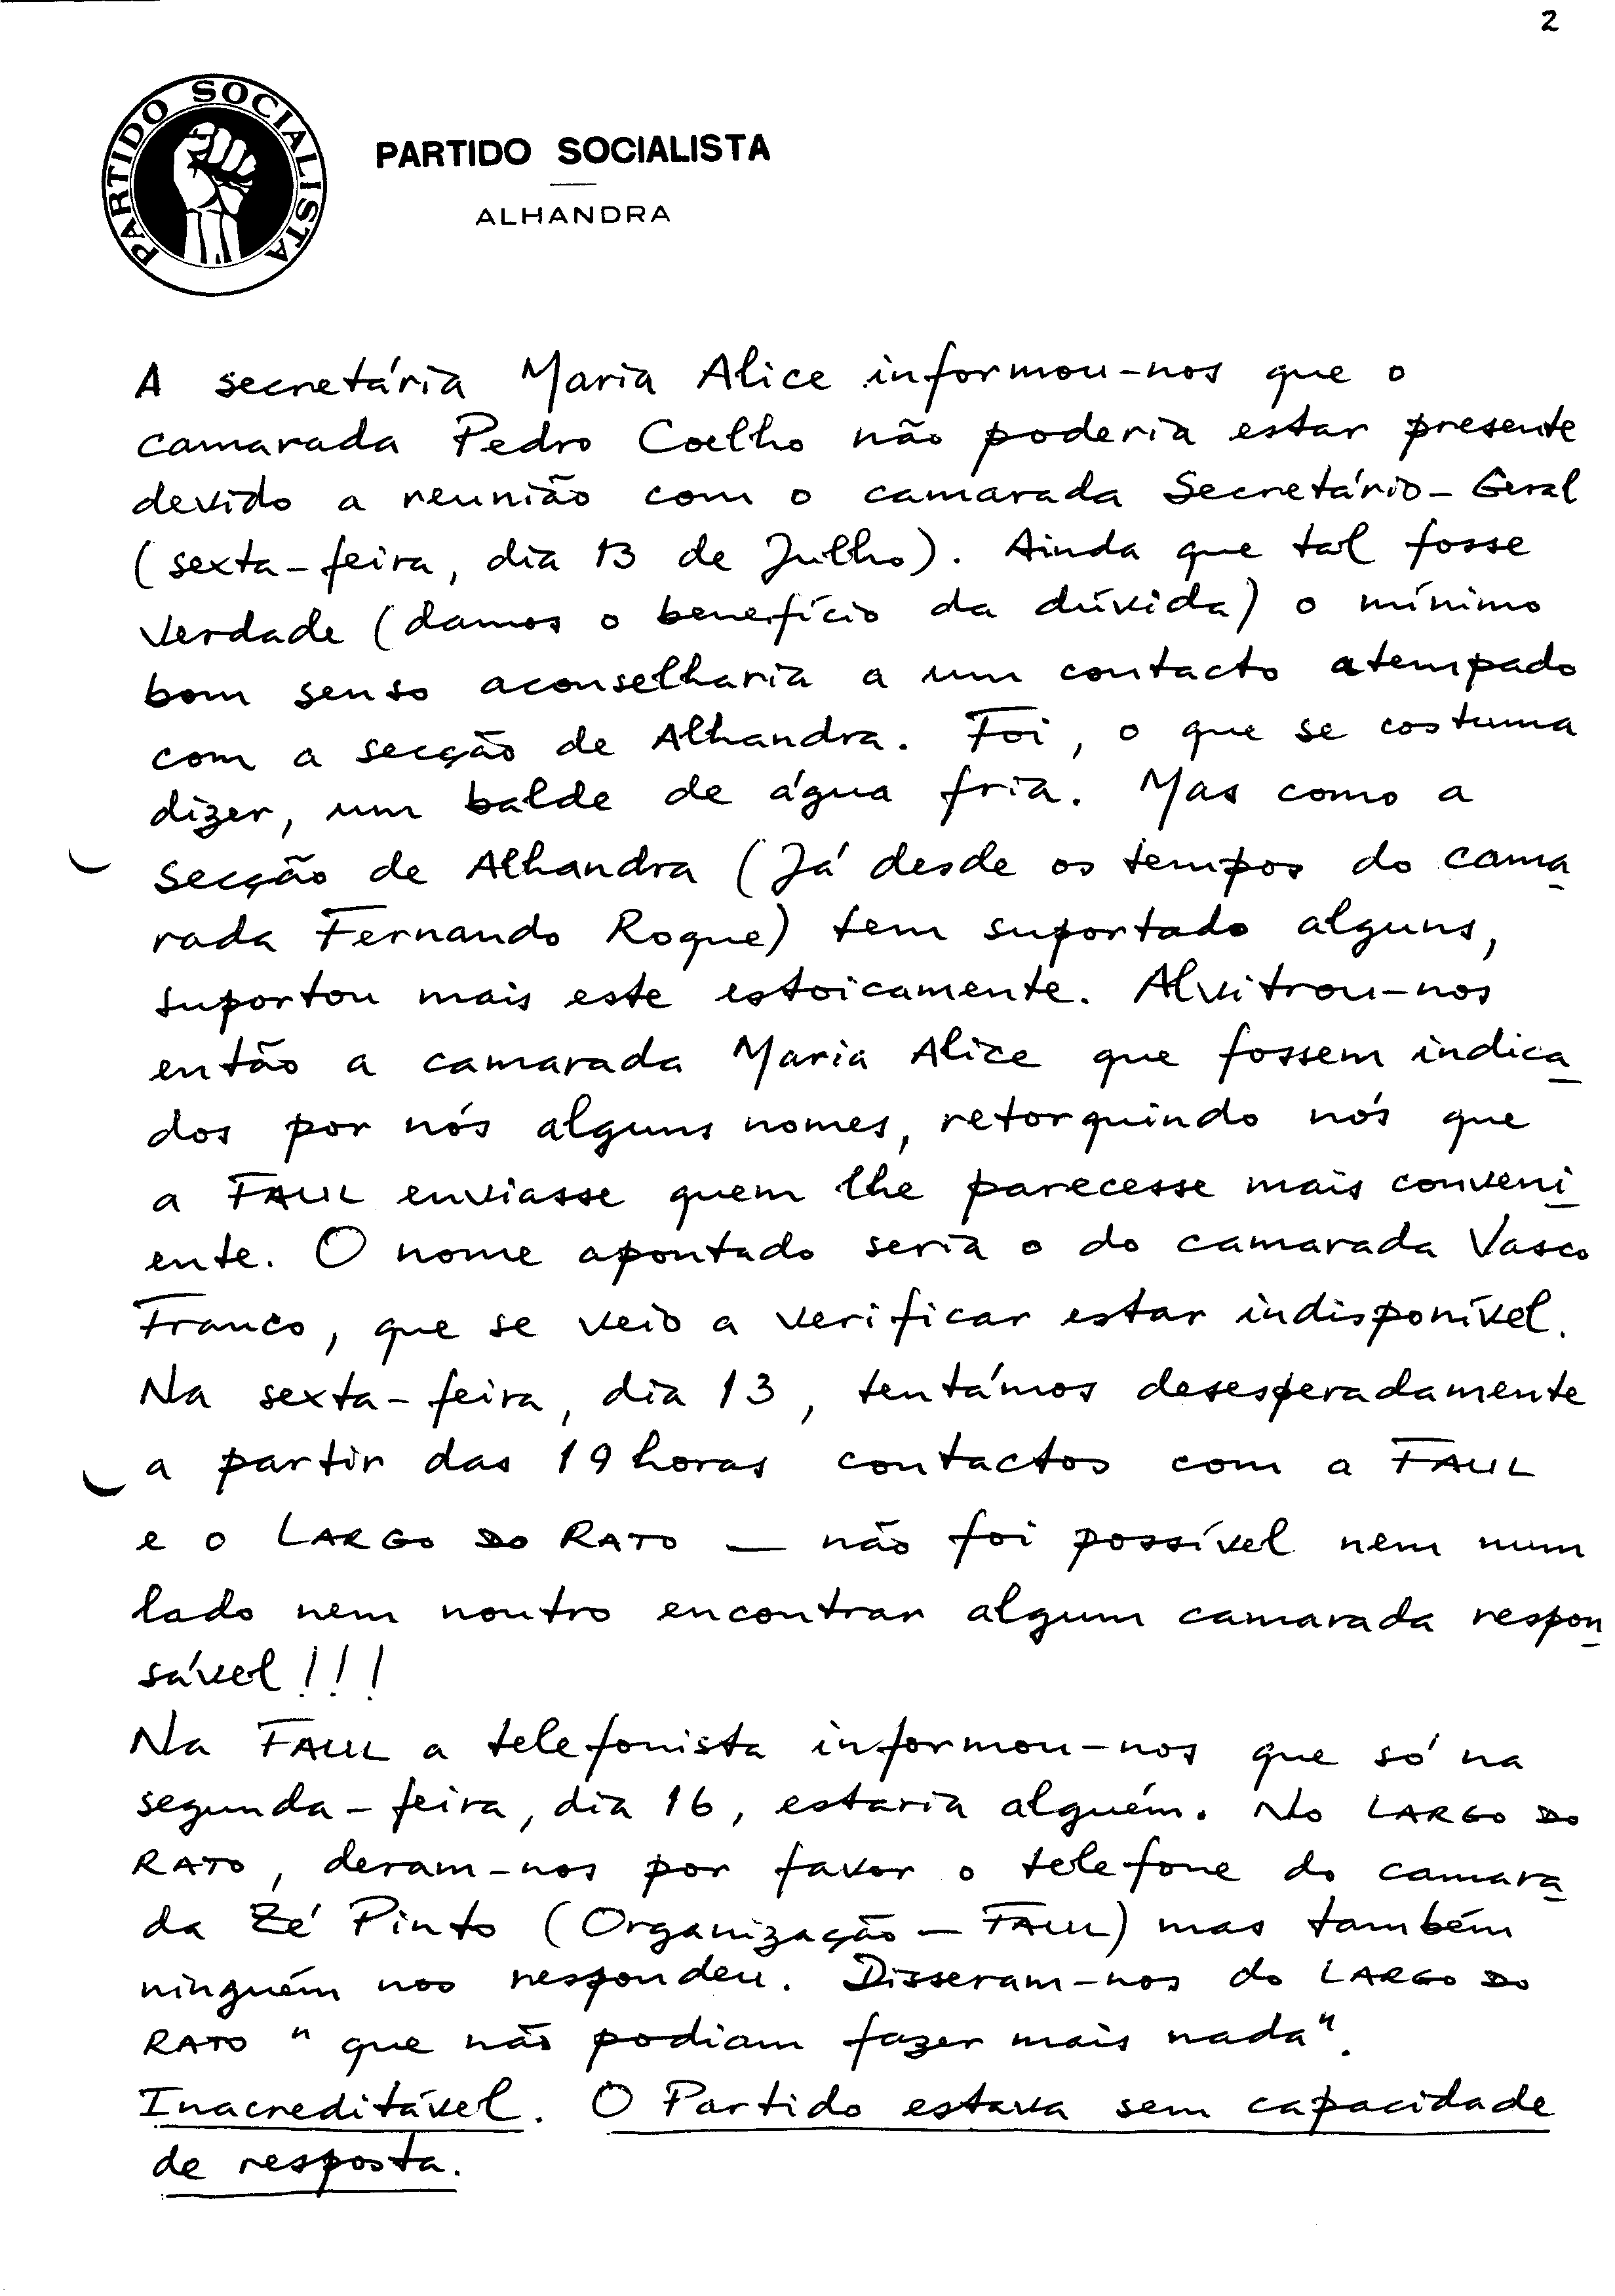 2
PARTIDO SOCIALISTA
PARTIDO SOCIALISTA
ALHANDRA
A secretária Maria Alice informou-nos que o
camarada Pedro Coelho não poderia estar presente
devido a reunião com o camarada Secretário-Geral
(sexta-feira, dia 13 de Julho). Ainda que tal fosse
verdade (damos o benefício da dúvida) o mínimo
bom senso aconselharia a um contacto atempado
com a secção de Alhandra. Foi, o que se costuma
dizer, um balde de água fria. Mas como a
Secção de Alhandra (Já desde os tempos do cama
rada Fernando Roque) tem suportado alguns,
suportou mais este estoicamente. Alvitrou-nos
então a camarada Maria Alice que fossem indica
dos por nós alguns nomes, retorquindo nós que
a FAUL enviasse quem lhe parecesse mais conveni
ente. O nome apontado seria o do camarada Vasco
Franco, que se veio a verificar estar indisponível.
Na sexta-feira, dia 13, tentámos desesperadamente
a partir das 19 horas contactos com a FAUL
e o LARGO DO RATO — não foi possível nem num
lado nem noutro encontrar algum camarada respon
sável!!!
Na FAUL a telefonista informou-nos que só na
segunda-feira, dia 16, estaria alguém. No LARGO DO
RATO, deram-nos por favor o telefone do camara
da Zé Pinto (Organização — FAUL) mas também
ninguém nos respondeu. Disseram-nos do LARGO DO
RATO "que não podiam fazer mais nada".
Inacreditável. O Partido estava sem capacidade
de resposta.